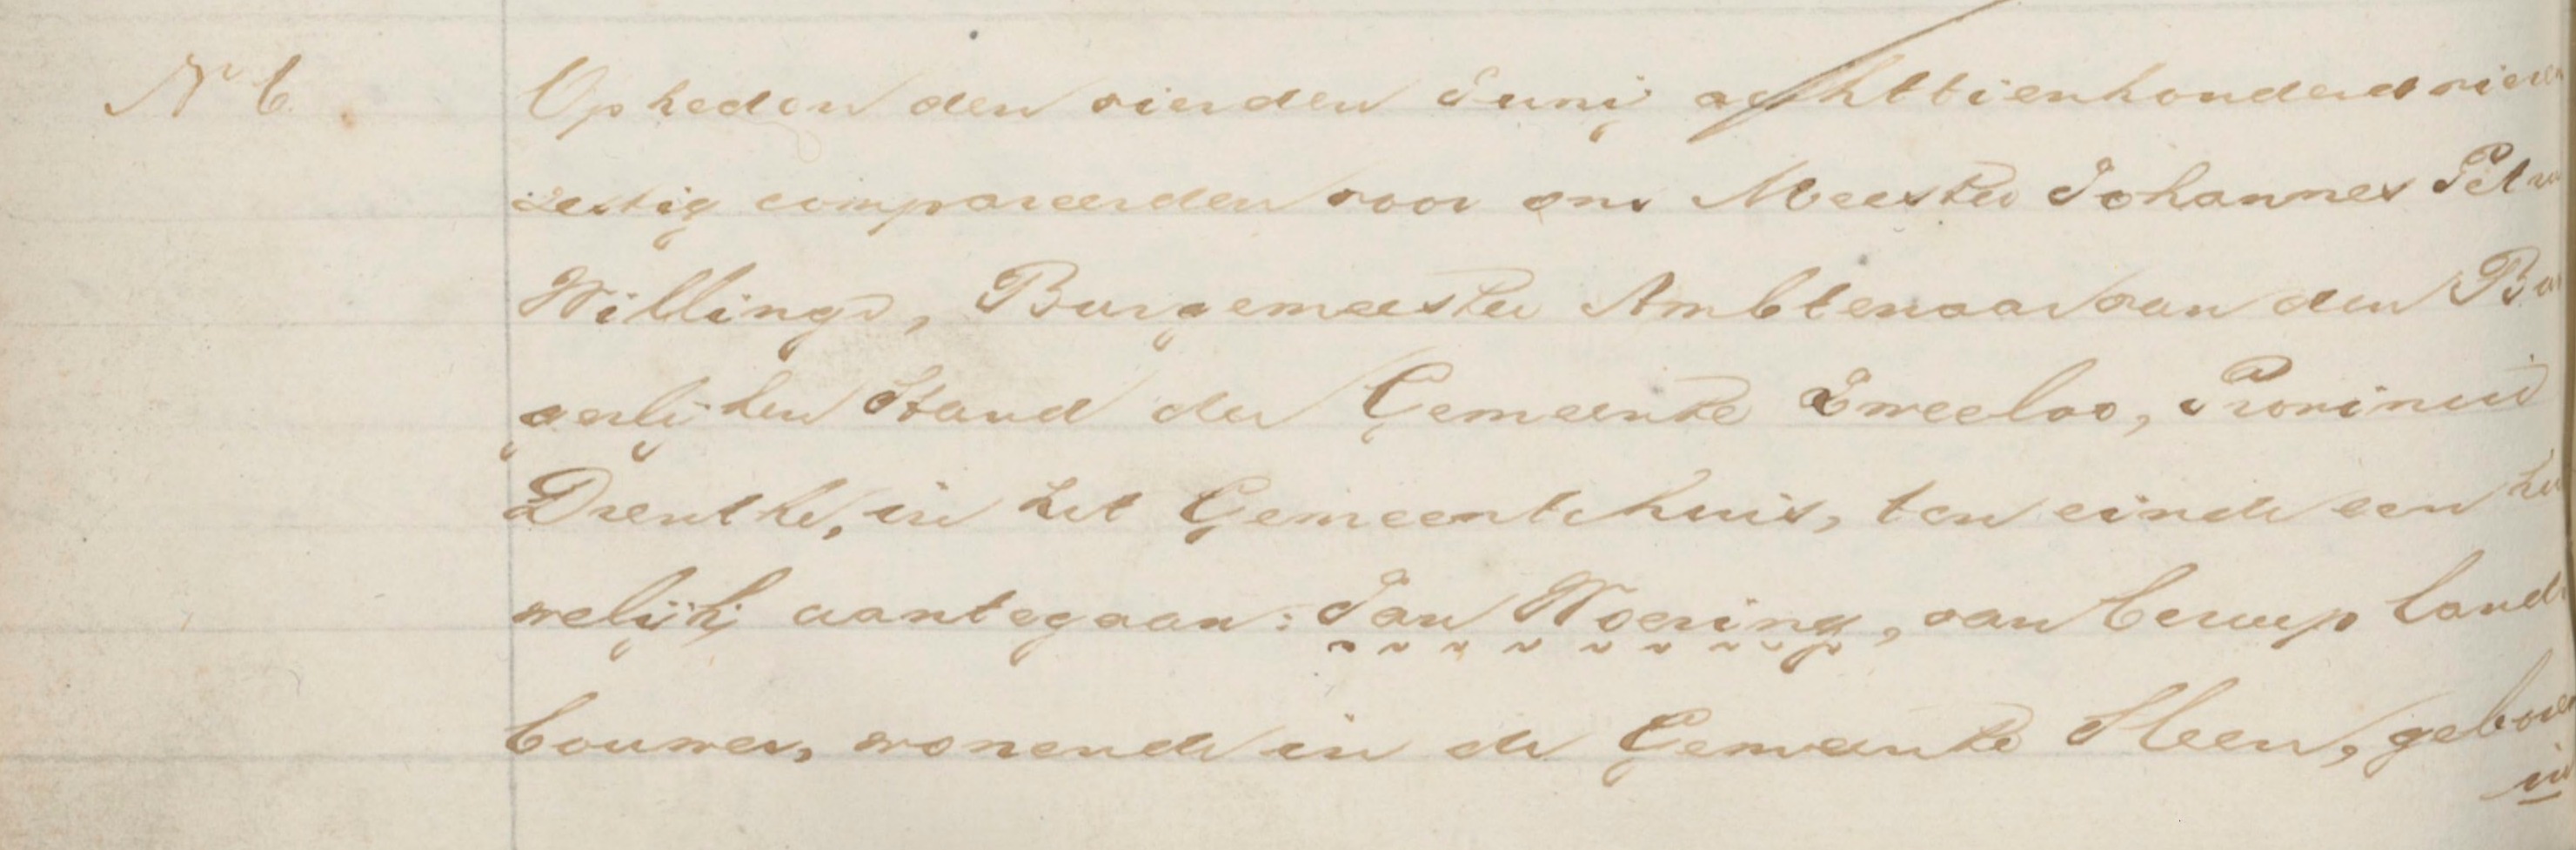 No 6. Op heden den vierden Junij achttienhonderd vieren
zestig compareerden voor ons Meester Johannes Petrus
Willinge, Burgemeester Ambtenaar van den Bur
gerlijken Stand der Gemeente Zweeloo, Provincie
Drenthe, in het Gemeentehuis, ten einde een hu
welijk aantegaan: Jan Woering, van beroep land
bouwer, wonende in de Gemeente Sleen, geboren
in